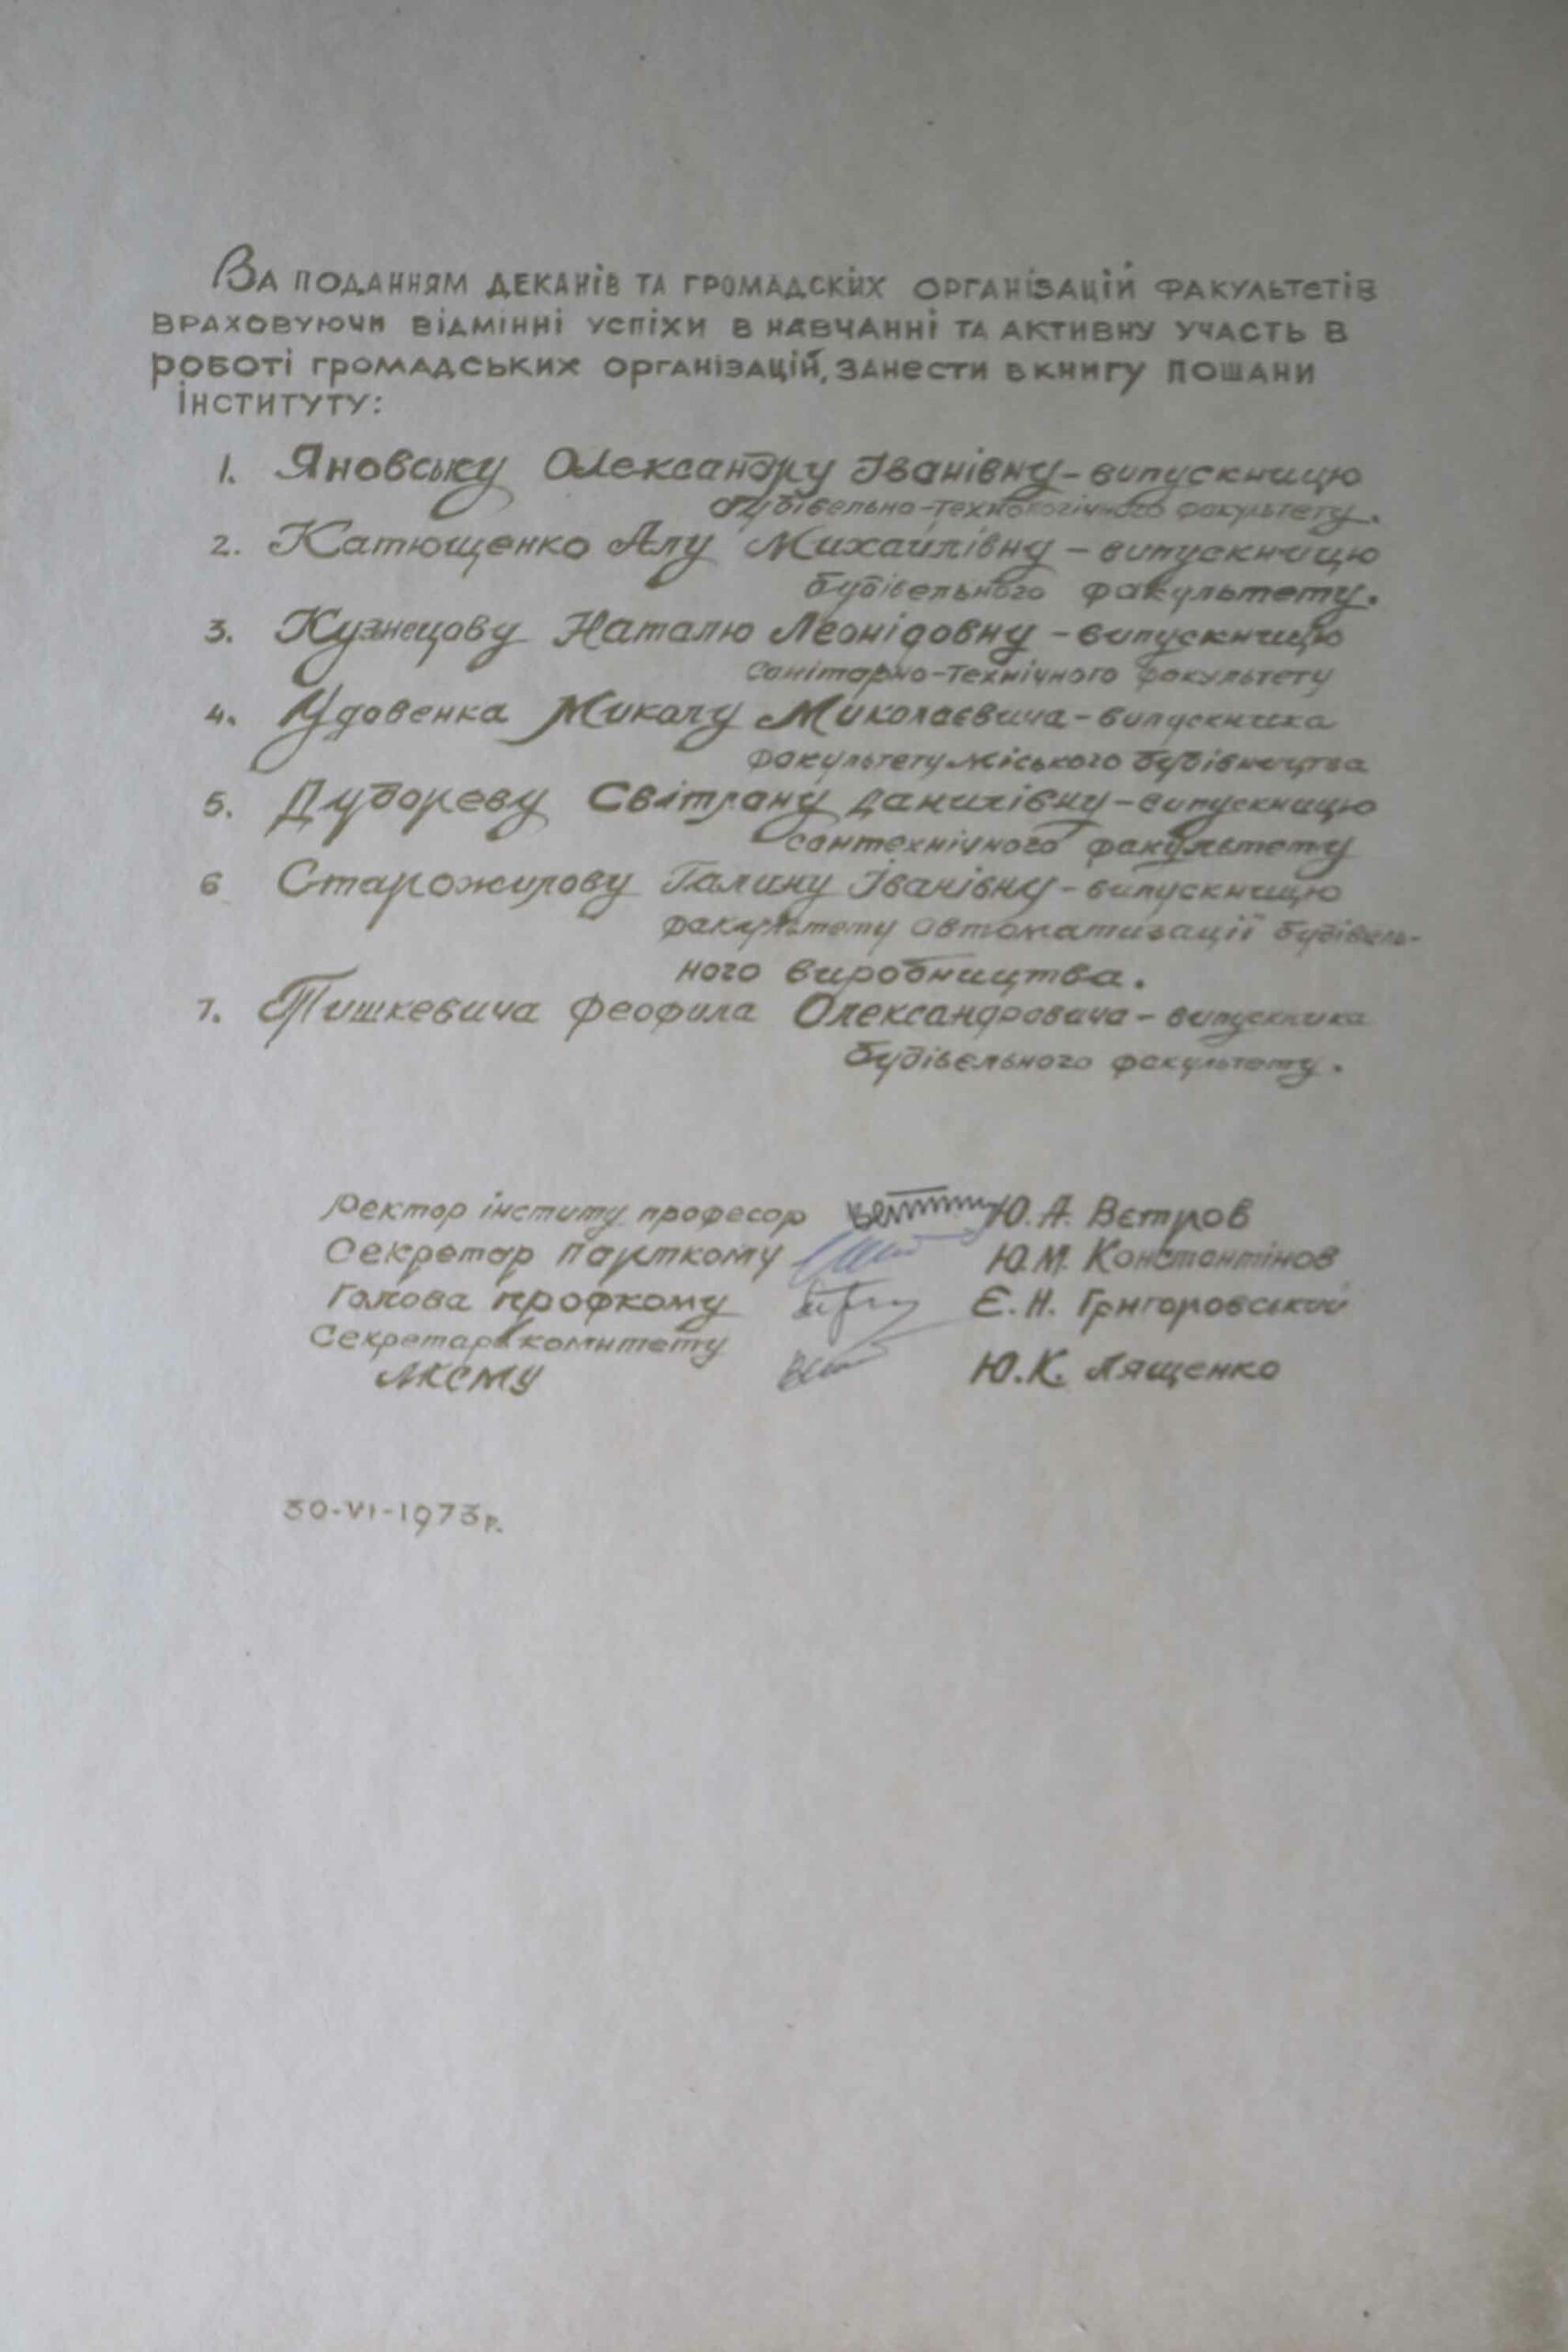 За поданням деканів та громадских організацій факультетів
враховуючи відмінні успіхи в навчанні та активну участь в
роботі громадських організацій, занести в книгу пошани
інституту:
1. Яновську Олександру Іванівну - випускницю
будівельно-технологічного факультету.
2. Катющенко Алу Михайлівну - випускницю
будівельного факультету.
3. Кузнецову Наталю Леонідовну - випускницю
санітарно-технічного факультету
4. Удовенка Миколу Миколаєвича - випускника
факультету міського будівництва
5. Дубореву Світлану Данилівну - випускницю
сантехнічного факультету
6 Старожилову Галину Іванівну - випускницю
факультету автоматизації будівель-
ного виробництва.
7. Тишкевича Феофила Олександровича - випускника
будівельного факультету.
Ректор інституту професор Ю. А. Вєтров
Секретар парткому Ю.М. Константінов
Голова профкому Є. Н. Григоровський
Секретар комитету
ЛКСМУ Ю.К. Лященко
30-VI-1973р.